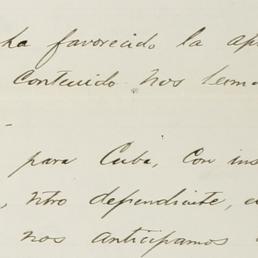 ha favorecido la ap
Contenido nos
para Cuba, con ins
, ntro dependiente, e
nos anticipamos